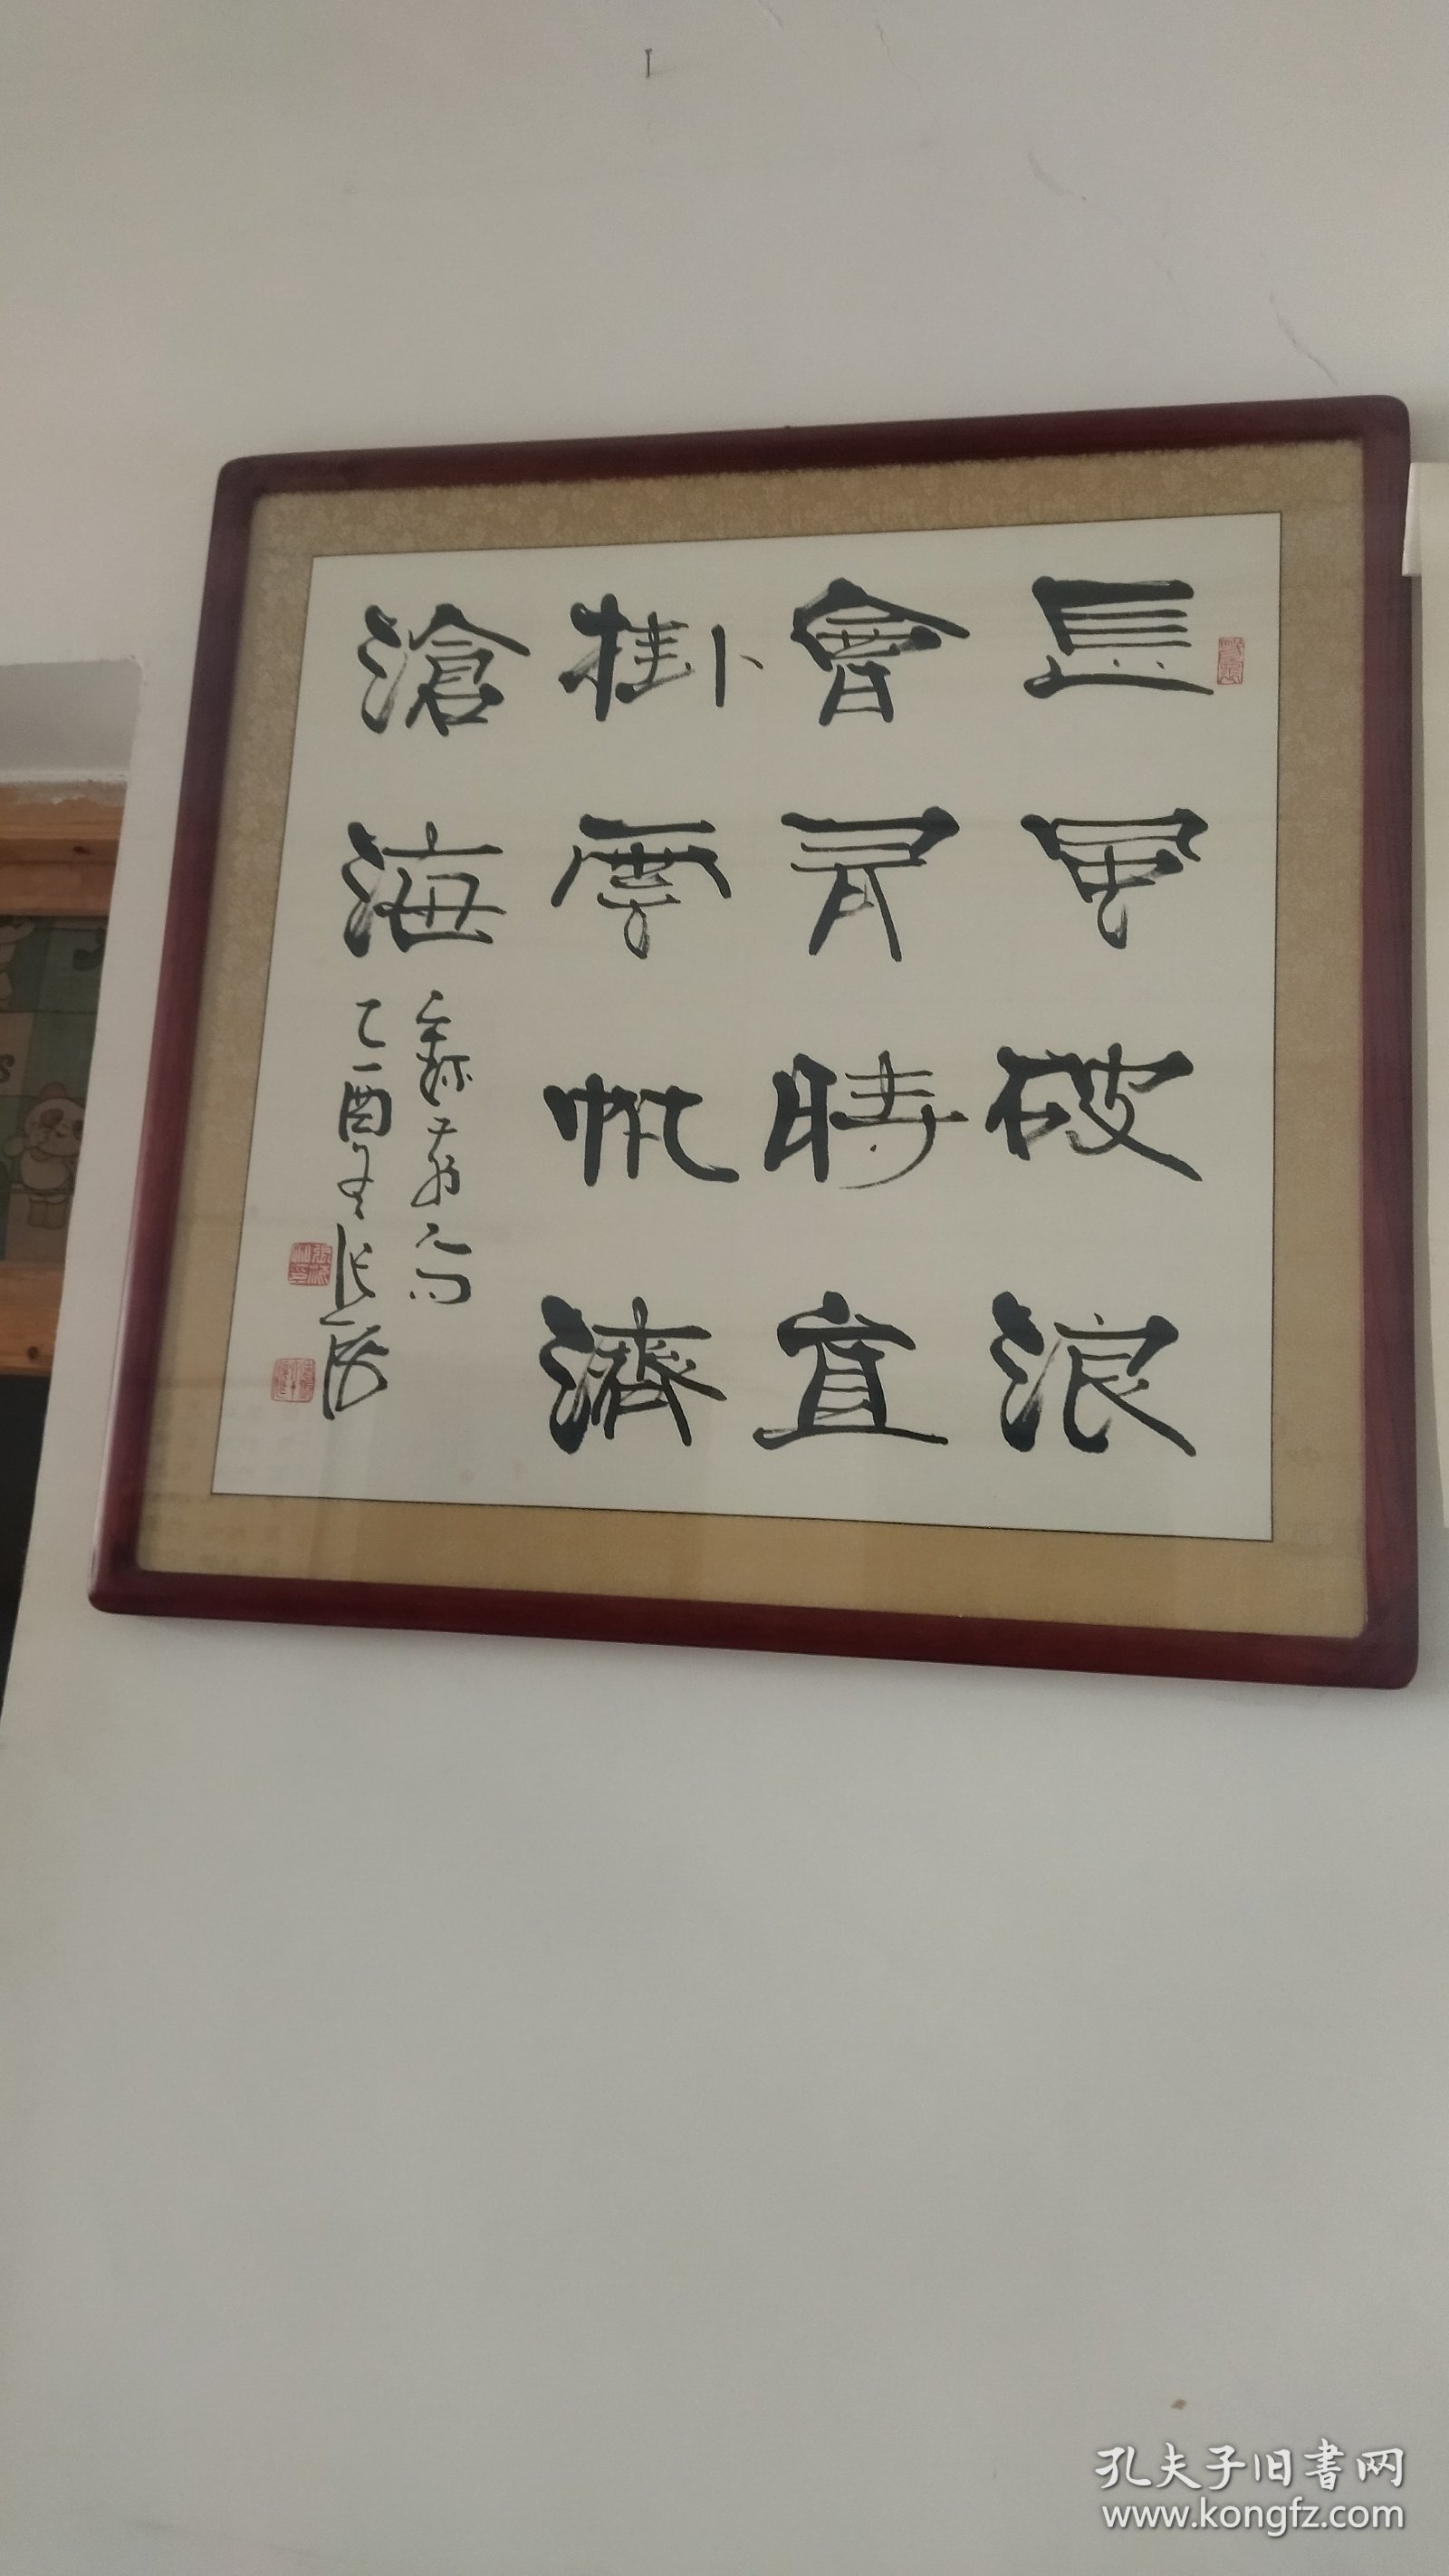 長風破浪
會有時直
掛雲帆濟
滄海
乙酉冬張
孔夫子旧书网
www.kongfz.com